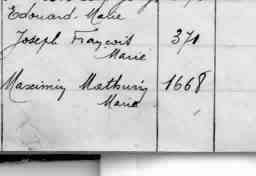 Edouard-Marie
Joseph Françoit 371
Marie
Maximin Mathurin 1668
Marie